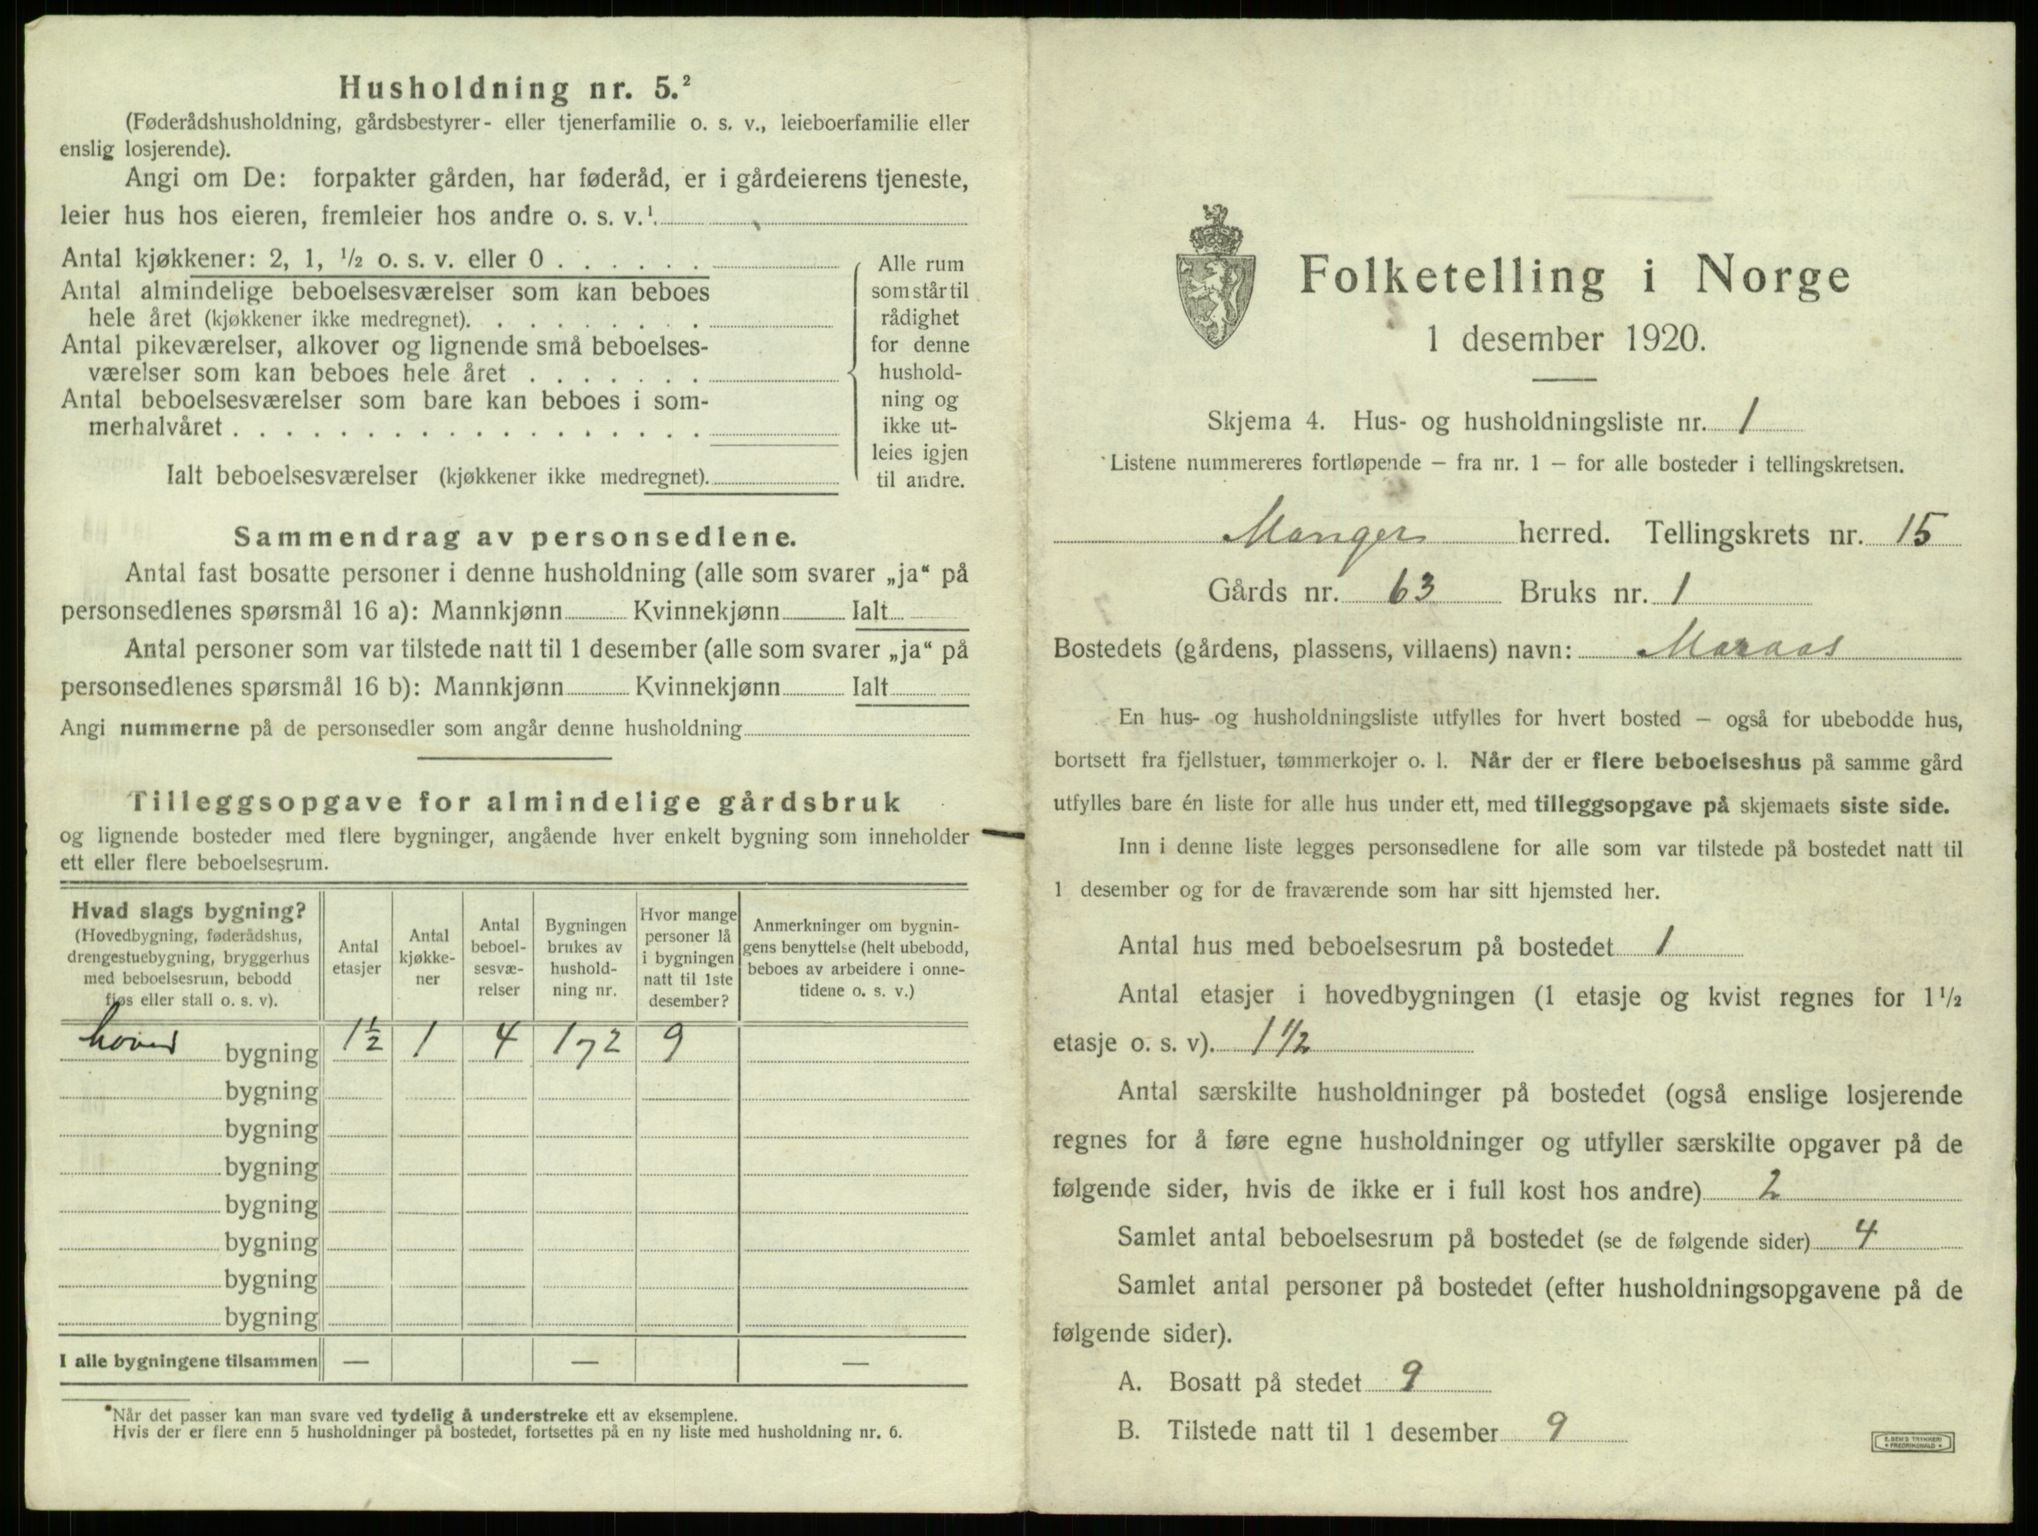 Husholdning nr. 5.²
(Føderådshusholdning, gårdsbestyrer- eller tjenerfamilie o. s. v., leieboerfamilie eller
enslig losjerende).
Angi om De: forpakter gården, har føderåd, er i gårdeierens tjeneste,
leier hus hos eieren, fremleier hos andre o. s. v.¹
Antal kjøkkener: 2, 1, ½ o. s. v. eller 0
Antal almindelige beboelsesværelser som kan beboes
hele året (kjøkkener ikke medregnet).
Antal pikeværelser, alkover og lignende små beboelses-
værelser som kan beboes hele året
Antal beboelsesværelser som bare kan beboes i som-
merhalvåret
Ialt beboelsesværelser (kjøkkener ikke medregnet).
Alle rum
som står til
rådighet
for denne
hushold-
ning og
ikke ut-
leies igjen
til andre.
Sammendrag av personsedlene.
Antal fast bosatte personer i denne husholdning (alle som svarer „ja“ på
personsedlenes spørsmål 16 a): Mannkjønn Kvinnekjønn Ialt
Antal personer som var tilstede natt til 1 desember (alle som svarer „ja“ på
personsedlenes spørsmål 16 b): Mannkjønn Kvinnekjønn Ialt
Angi nummerne på de personsedler som angår denne husholdning
Tilleggsopgave for almindelige gårdsbruk
og lignende bosteder med flere bygninger, angående hver enkelt bygning som inneholder
ett eller flere beboelsesrum.
Hvad slags bygning?
(Hovedbygning, føderådshus,
drengestuebygning, bryggerhus
med beboelsesrum, bebodd
fjøs eller stall o. s. v).
Antal
etasjer
Antal
kjøkke-
ner
Antal
beboel-
sesvæ-
relser
Bygningen
brukes av
hushold-
ning nr.
Hvor mange
personer lå
i bygningen
natt til 1ste
desember?
Anmerkninger om bygnin-
gens benyttelse (helt ubebodd,
beboes av arbeidere i onne-
tidene o. s. v.)
hoved bygning 1½ 1 4 1 7 2 9
bygning
bygning
bygning
bygning
bygning
bygning
bygning
I alle bygningene tilsammen — — —
*Når det passer kan man svare ved tydelig å understreke ett av eksemplene.
Hvis der er flere enn 5 husholdninger på bostedet, fortsettes på en ny liste med husholdning nr. 6.
Folketelling i Norge
1 desember 1920.
Skjema 4. Hus- og husholdningsliste nr. 1
Listene nummereres fortløpende – fra nr. 1 – for alle bosteder i tellingskretsen.
Manger herred. Tellingskrets nr. 15
Gårds nr. 63 Bruks nr. 1
Bostedets (gårdens, plassens, villaens) navn: Maraas
En hus- og husholdningsliste utfylles for hvert bosted – også for ubebodde hus,
bortsett fra fjellstuer, tømmerkojer o. l. Når der er flere beboelseshus på samme gård
utfylles bare én liste for alle hus under ett, med tilleggsopgave på skjemaets siste side.
Inn i denne liste legges personsedlene for alle som var tilstede på bostedet natt til
1 desember og for de fraværende som har sitt hjemsted her.
Antal hus med beboelsesrum på bostedet 1
Antal etasjer i hovedbygningen (1 etasje og kvist regnes for 1½
etasje o. s. v). 1½
Antal særskilte husholdninger på bostedet (også enslige losjerende
regnes for å føre egne husholdninger og utfyller særskilte opgaver på de
følgende sider, hvis de ikke er i full kost hos andre) 2
Samlet antal beboelsesrum på bostedet (se de følgende sider) 4
Samlet antal personer på bostedet (efter husholdningsopgavene på de
følgende sider).
A. Bosatt på stedet 9
B. Tilstede natt til 1 desember 9